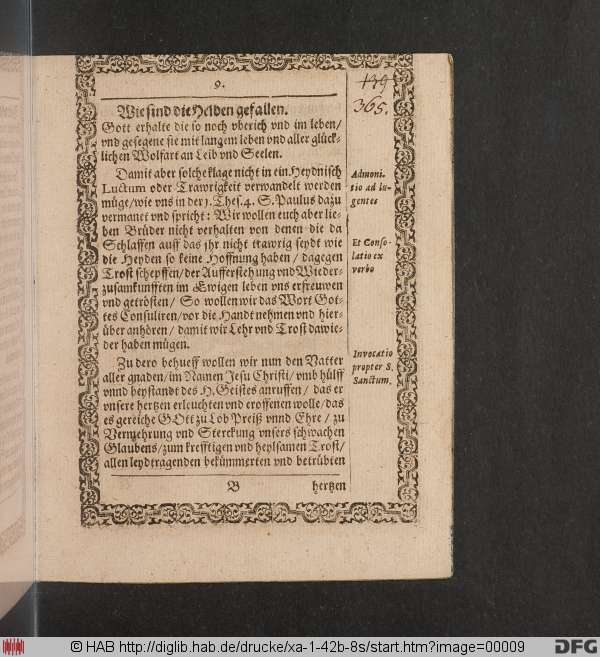 9.
139
365.
Wie sind die Helden gefallen.
Gott erhalte die so noch vberich vnd im leben/
vnd gesegene sie mit langem leben vnd aller glück-
lichen Wolfart an Leib vnd Seelen.
Damit aber solche klage nicht in ein Heydnisch
Luctum oder Trawrigkeit verwandelt werden
müge/wie vns in der 1. Thes. 4. S. Paulus dazu
vermanet vnd spricht: Wir wollen euch aber lie-
ben Brüder nicht verhalten von denen die da
Schlaffen auff das jhr nicht trawrig seydt wie
die Heyden so keine Hoffnung haben / dagegen
Trost schepffen/der Aufferstehung vnd Wieder-
zusamkunfften im Ewigen leben vns erfreuwen
vnd getrösten / So wollen wir das Wort Got-
tes Consuliren/vor die Handt nehmen vnd hier-
über anhören / damit wir Lehr vnd Trost dawie-
der haben mügen.
Zu dero behueff wollen wir nun den Vatter
aller gnaden/im Namen Jesu Christi/ vmb hülff
vnnd beystandt des H. Geistes anruffen / das er
vnsere hertzen erleuchten vnd eroffenen wolle/das
es gereiche GOtt zu Lob Preitz vnnd Ehre / zu
Vermehrung vnd Sterckung vnsers schwachen
Glaubens/zum krefftigen vnd heylsamen Trost/
allen leydtragenden bekümmerten vnd betrübten
B hertzen
Admoni-
tio ad lu-
gentes
Et Conso-
latio ex
verbo
Invocatio
propter S.
Sanctum.
© HAB http://diglib.hab.de/drucke/xa-1-42b-8s/start.htm?image=00009
DFG